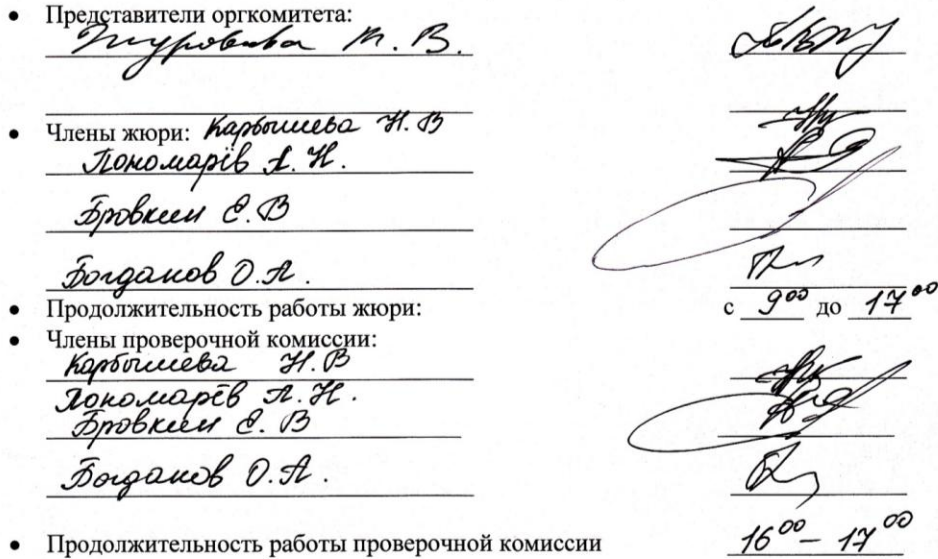 • Представители оргкомитета:
Т. В.
• Члены жюри: Карбышева Н. В
Пономарёв А. Н.
Бровкин Е. В
Богданов О. А.
• Продолжительность работы жюри: с 9⁰⁰ до 17⁰⁰
• Члены проверочной комиссии:
Карбышева Н. В
Пономарёв А. Н.
Бровкин Е. В
Богданов О. А.
• Продолжительность работы проверочной комиссии 16⁰⁰ – 17⁰⁰